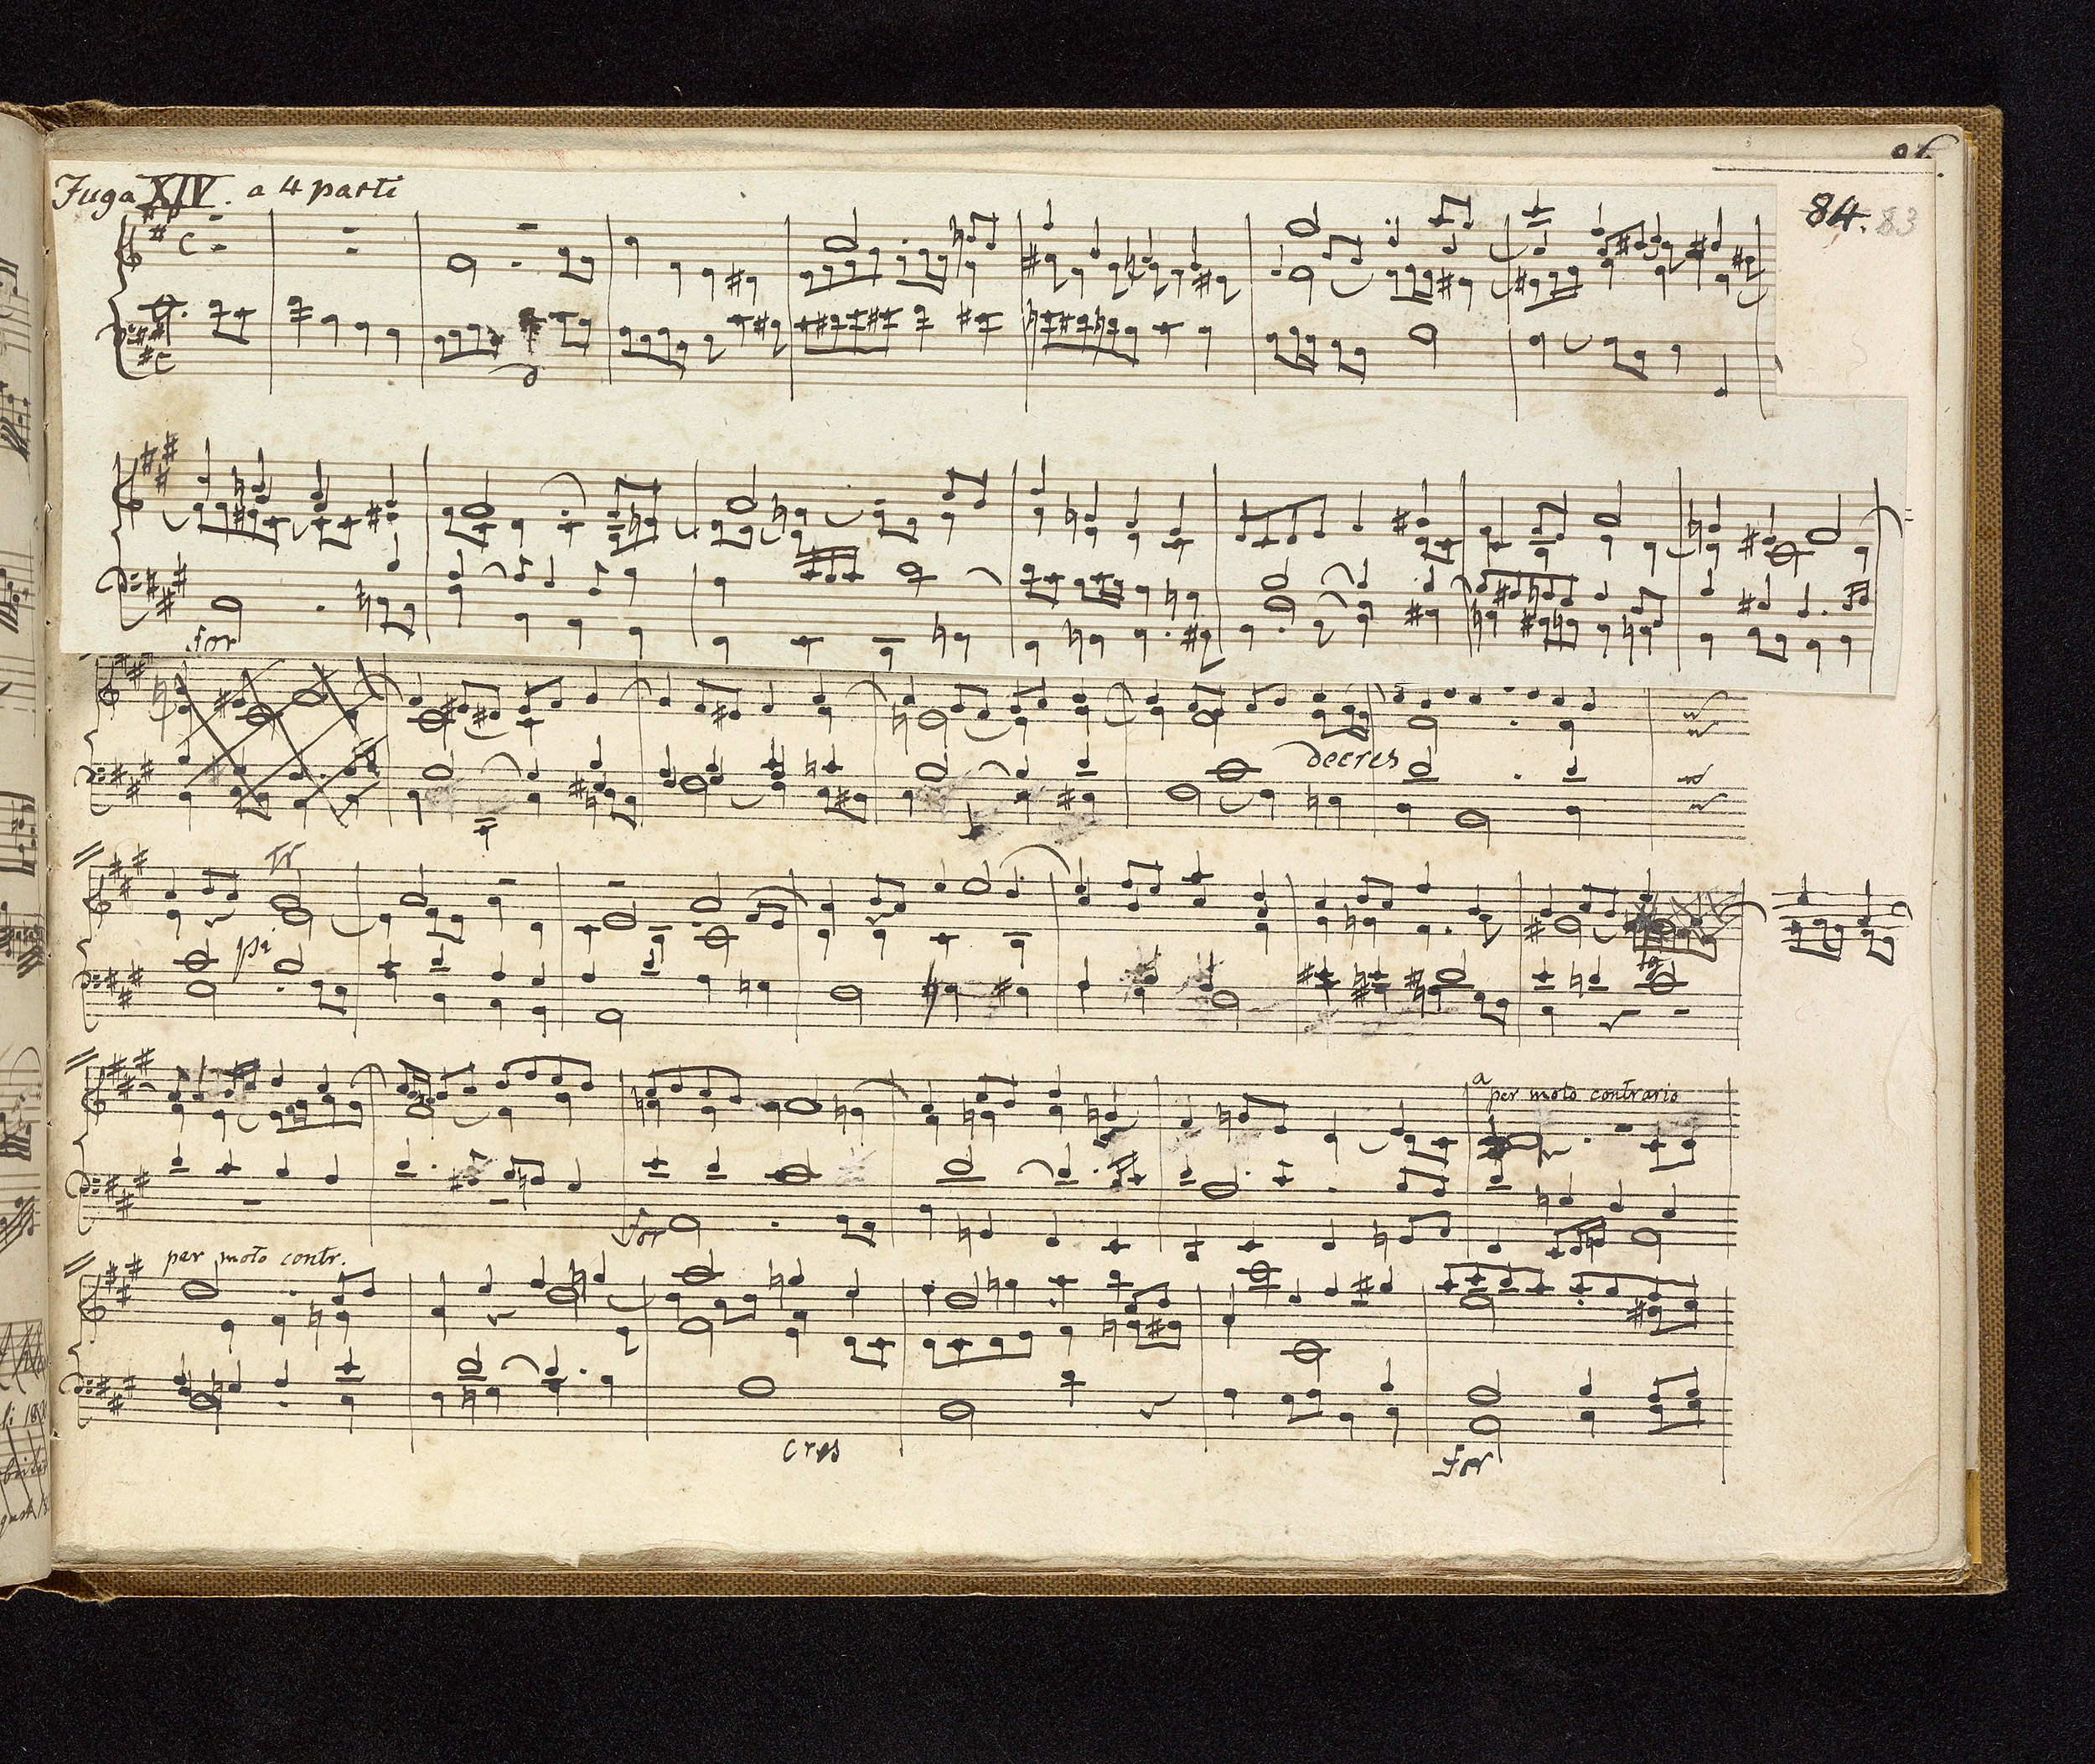 Fuga XIV. a 4 parti
84. 83
for
decres
tr
pi
per moto contrario
for
per moto contr.
cres
for